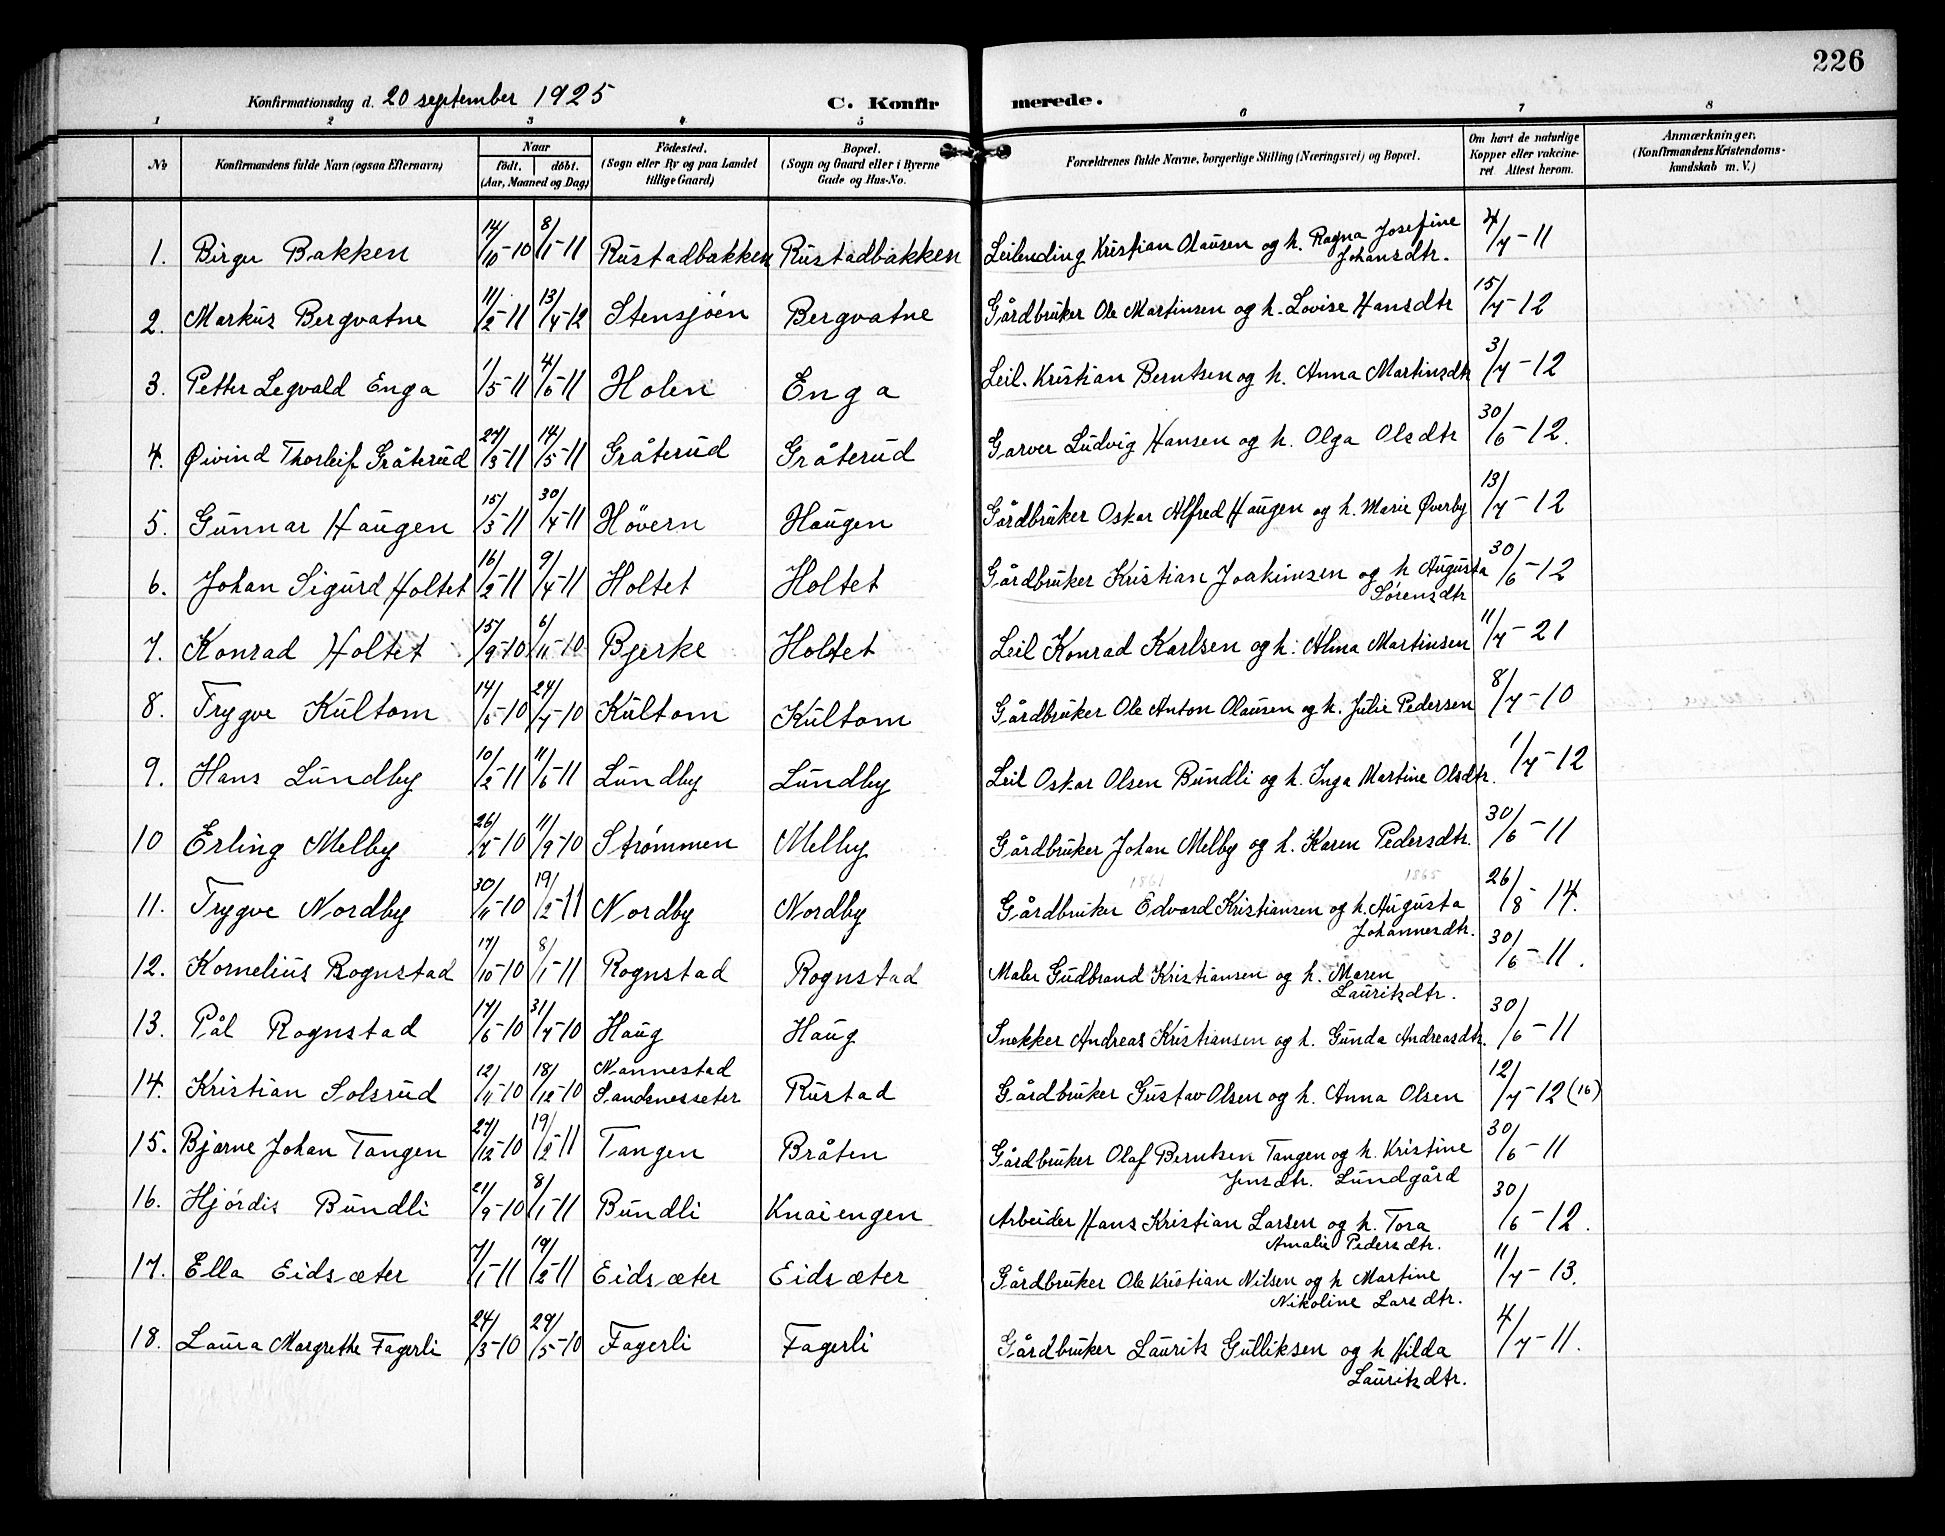 226
Konfirmationsdag d. 20 september 1925 C. Konfirmerede.
1 2 3 4 5 6 7 8
No Konfirmandens fulde Navn (ogsaa Efternavn) Naar født. døbt. (Aar, Maaned og Dag) Fødested. (Sogn eller By og paa Landet tillige Gaard) Bopæl. (Sogn og Gaard eller i Byerne Gade og Hus-No. Forældrenes fulde Navne, borgerlige Stilling (Næringsvei) og Bopæl. Om havt de naturlige Kopper eller vakcineret Attest herom. Anmærkninger. (Konfirmandens Kristendomskundskab m. V.)
1. Birger Bakken 14/10-10 8/1-11 Rustadbakken Rustadbakken Leilending Kristian Olausen og h. Ragna Josefine 4/7-11
Johansdtr.
2. Markus Bergvatne 11/2-11 13/4-12 Stensjøen Bergvatne Gårdbruker Ole Martinsen og h. Lovise Hansdtr 15/7-12
3. Petter Legvald Enga 1/5-11 4/6-11 Holen Enga Leil. Kristian Berntsen og h. Anna Martinsdtr 3/7-12
4. Øivind Thorleif Gråterud 27/3-11 14/5-11 Gråterud Gråterud Garver Ludvig Hansen og h. Olga Olsdtr 30/6-12.
5. Gunnar Haugen 15/3-11 30/4-11 Høvern Haugen Gårdbruker Oskar Alfred Haugen og h. Marie Øverby 13/7-12
6. Johan Sigurd Holtet 16/2-11 9/4-11 Holtet Holtet Gårdbruker Kristian Joakimsen og h Augusta 30/6-12
Sørensdtr
7. Konrad Holtet 15/9-10 6/11-10 Bjerke Holtet Leil Konrad Karlsen og h. Alma Martinsen 11/7-21
8. Trygve Kultom 14/6-10 24/7-10 Kultom Kultom Gårdbruker Ole Anton Olausen og h. Julie Pedersen 8/7-10
9. Hans Lundby 10/2-11 11/6-11 Lundby Lundby Leil Oskar Olsen Bundli og h. Inga Martine Olsdtr. 1/7-12
10 Erling Melby 26/7-10 11/9-10 Strømmen Melby Gårdbruker Johan Melby og h. Karen Pedersdtr. 30/6-11
1861 1865
11. Trygve Nordby 30/11-10 19/2-11 Nordby Nordby Gårdbruker Edvard Kristiansen og h. Augusta 26/8-14.
Johannesdtr.
12. Kornelius Rognstad 17/10-10 8/1-11 Rognstad Rognstad Maler Gudbrand Kristiansen og h. Maren 30/6-11.
Lauritsdtr.
13. Pål Rognstad 17/6-10 31/7-10 Haug Haug Snekker Andreas Kristiansen og h. Gunda Andreasdtr. 30/6-11
Nannestad
14. Kristian Solsrud 12/11-10 18/12-10 Sandsnesseter Rustad Gårdbruker Gustav Olsen og h. Anna Olsen 12/7-12 (16)
15. Bjarne Johan Tangen 27/12-10 19/2-11 Tangen Bråten Gårdbruker Olaf Berntsen Tangen og h. Kristine 30/6-11
Jensdtr. Lundgård
16. Hjørdis Bundli 21/9-10 8/1-11 Bundli Knaiengen Arbeider Hans Kristian Larsen og h. Tora 30/6-12.
Amalie Pedersdtr.
17. Ella Eidsæter 7/1-11 19/2-11 Eidsæter Eidsæter Gårdbruker Ole Kristian Nilsen og h Martine 11/7-13.
Nikoline Larsdtr.
18. Laura Margrethe Fagerli 24/3-10 29/5-10 Fagerli Fagerli Gårdbruker Laurits Gulliksen og h Hilda 4/7-11.
Lauritsdtr.